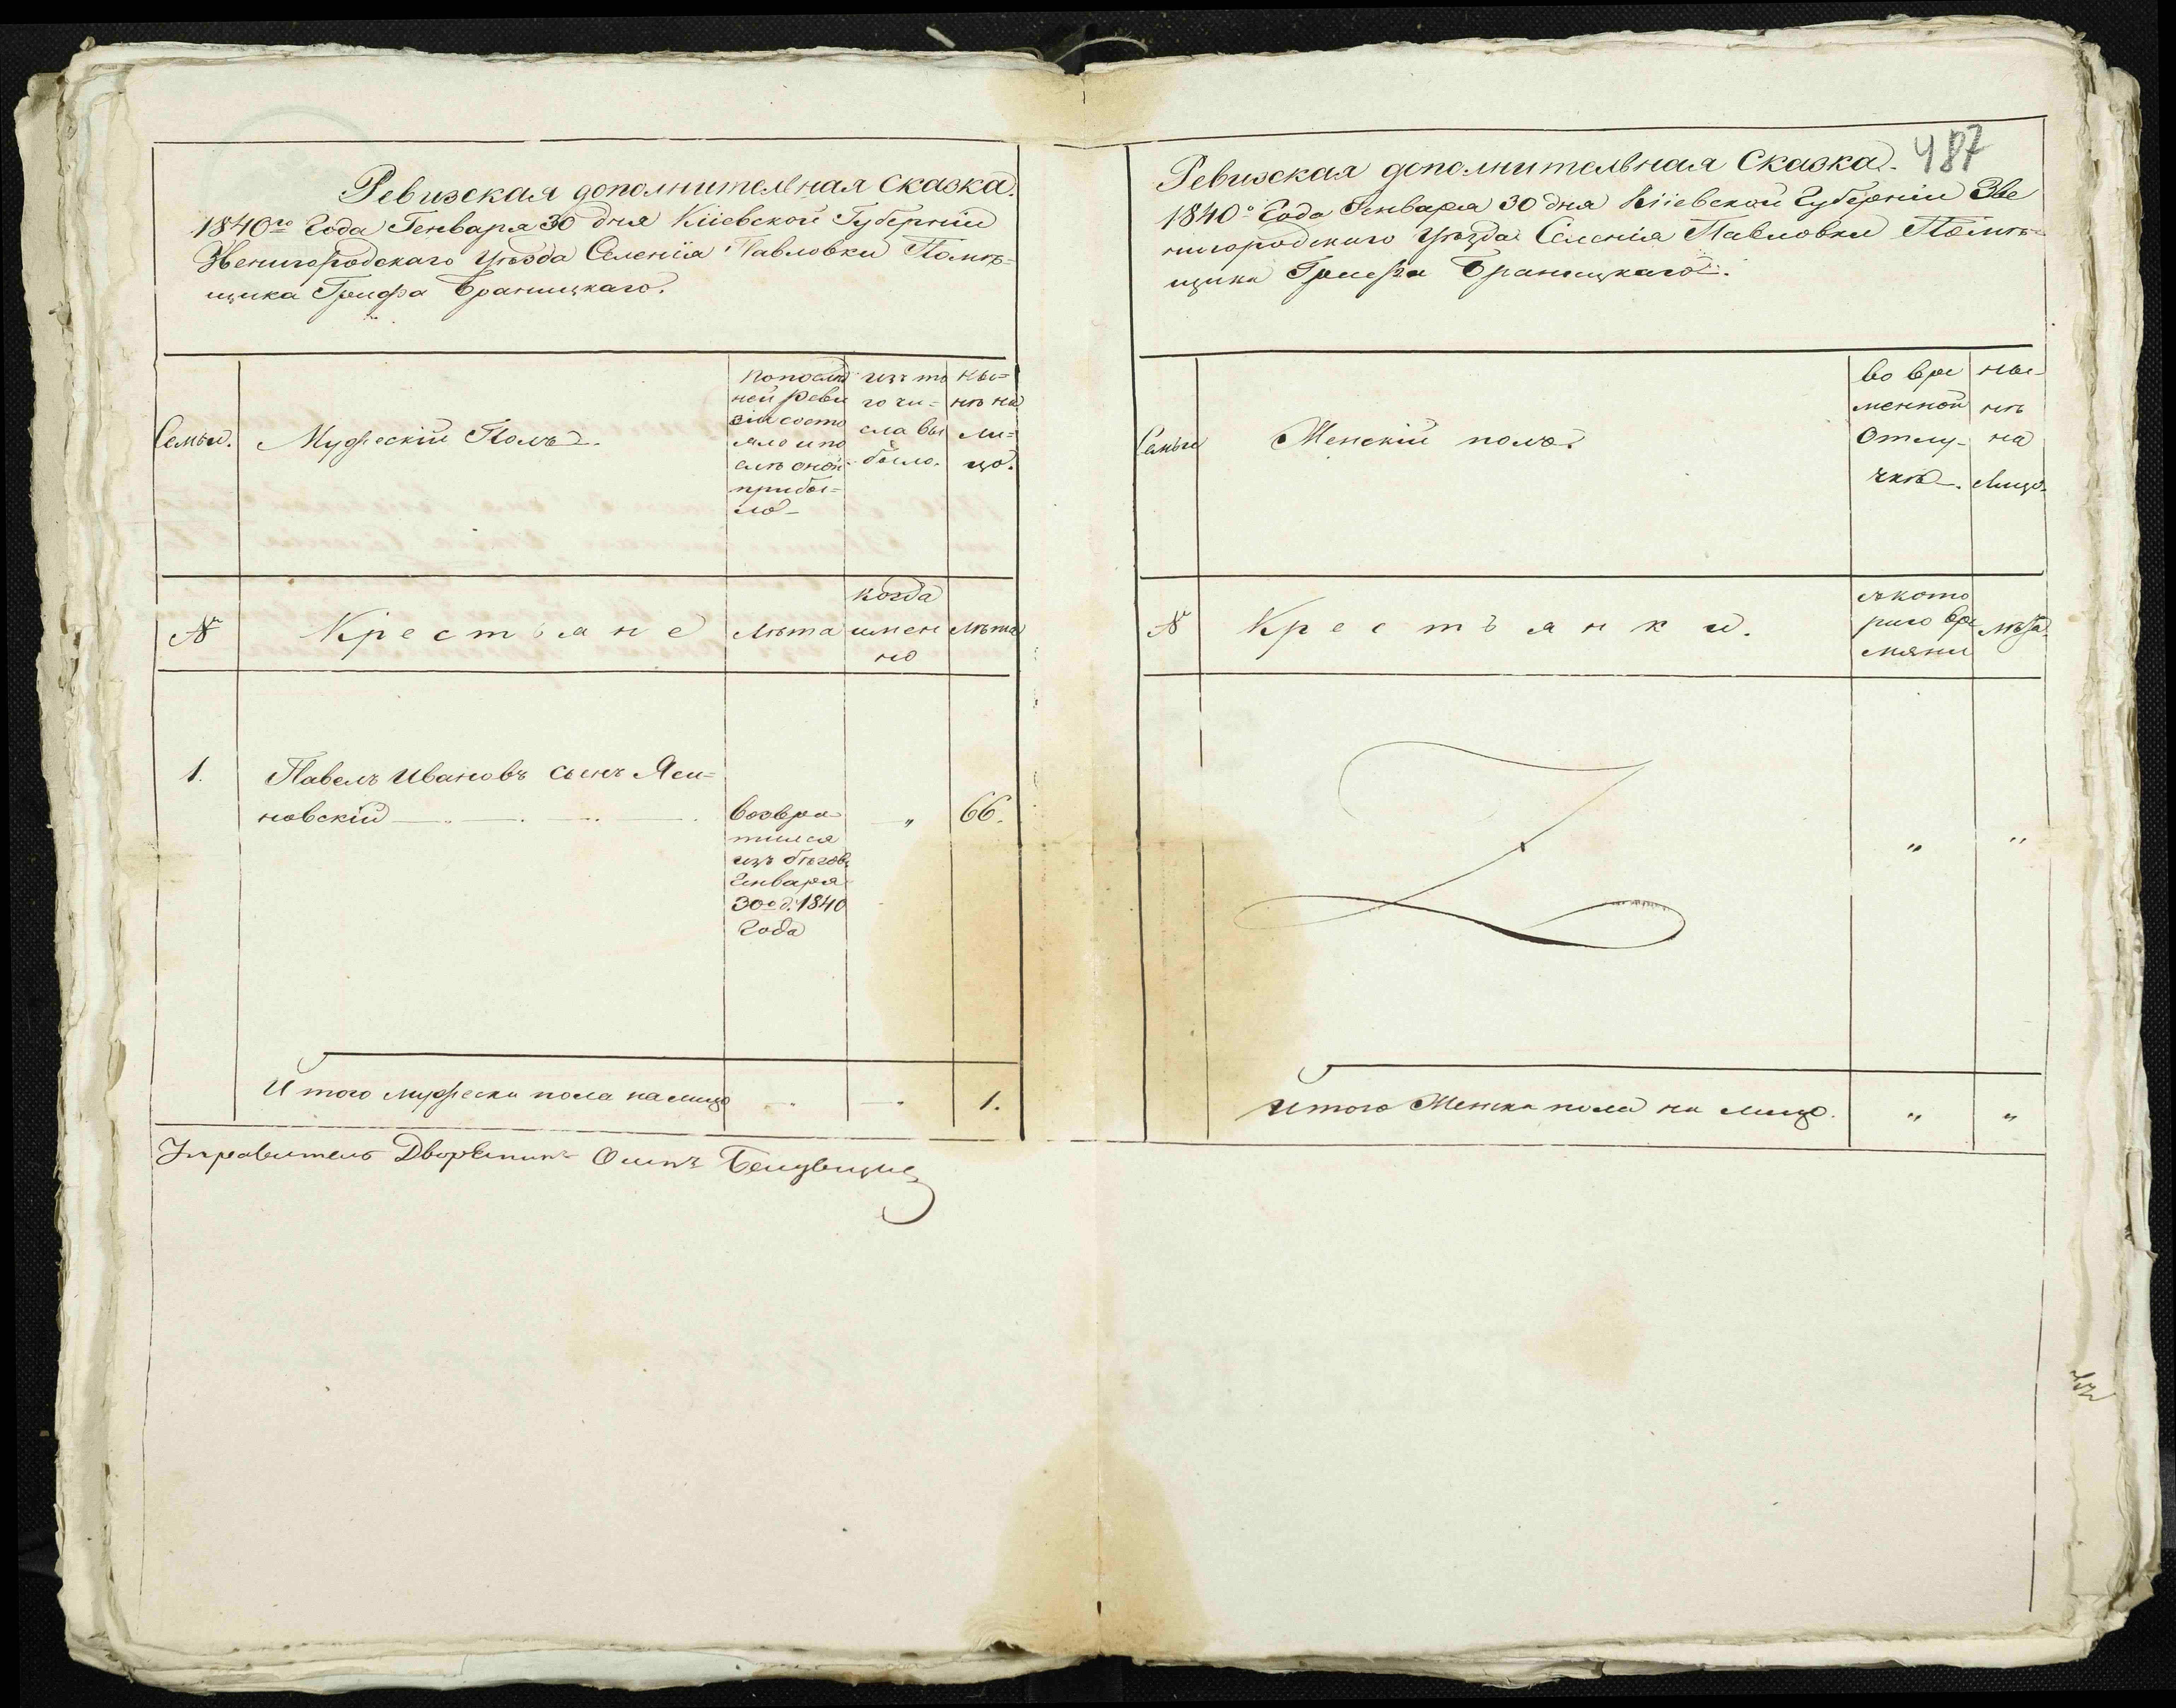 Ревизская дополнительная Сказка.
1840го Года Генваря 30 дня Кіевской Губерніи
Звенигородскаго уѣзда Селенія Павловки Помѣ=
щика Графа Браницкаго.
Семьи.
Мужескій Полъ.
Попослѣд
ней реви
зіи состо
яло и по
слѣ оной
прибы=
ло
изъ то
го чи=
сла вы
было.
ны=
нѣ на
ли=
цо.
№
Крестьяне
Лѣта
когда
имен
но
Лѣта
1.
Павелъ Ивановъ сынъ Яси=
новскій
возвра
тился
изъ бѣговъ
Генваря
30го д. 1840
Года
„
66.
Итого мужеска пола налицо
1.
Управитель Дворянинъ Осипъ
487
Ревизская дополнительная Сказка.
1840о Года Генваря 30 дня Кіевской Губерніи Зве
нигородскаго уѣзда Селенія Павловки Помѣ=
щика Графа Браницкаго.
Семьи
Женскій полъ.
во вре
менной
Отлу-
чкѣ.
ны-
нѣ
на
Лицо.
№
Крестьянки.
съ кото
раго вре
мяни
Лѣта.
„ „
Итого Женска пола на лицо. „ „